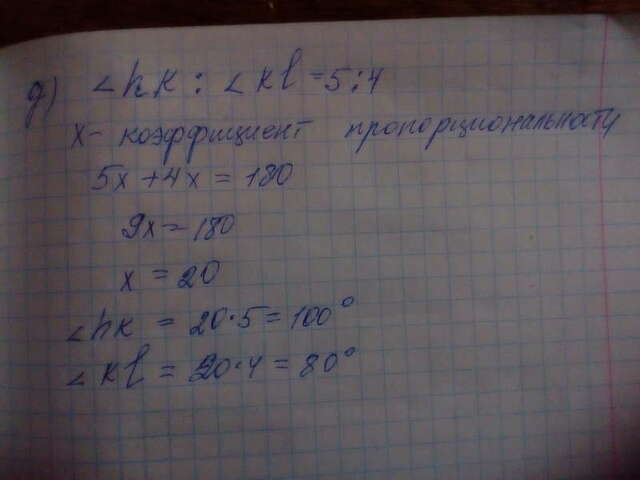 д) ∠hk : ∠kl = 5:4
х - коэффициент пропорциональности
5х + 4х = 180
9х = 180
х = 20
∠hk = 20·5 = 100°
∠kl = 20·4 = 80°